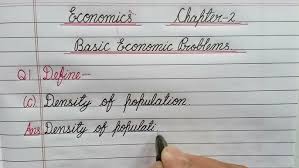 Economics Chapter-2
Basic Economic Problems
Q1 Define—
(c) Density of population.
Ans Density of populati